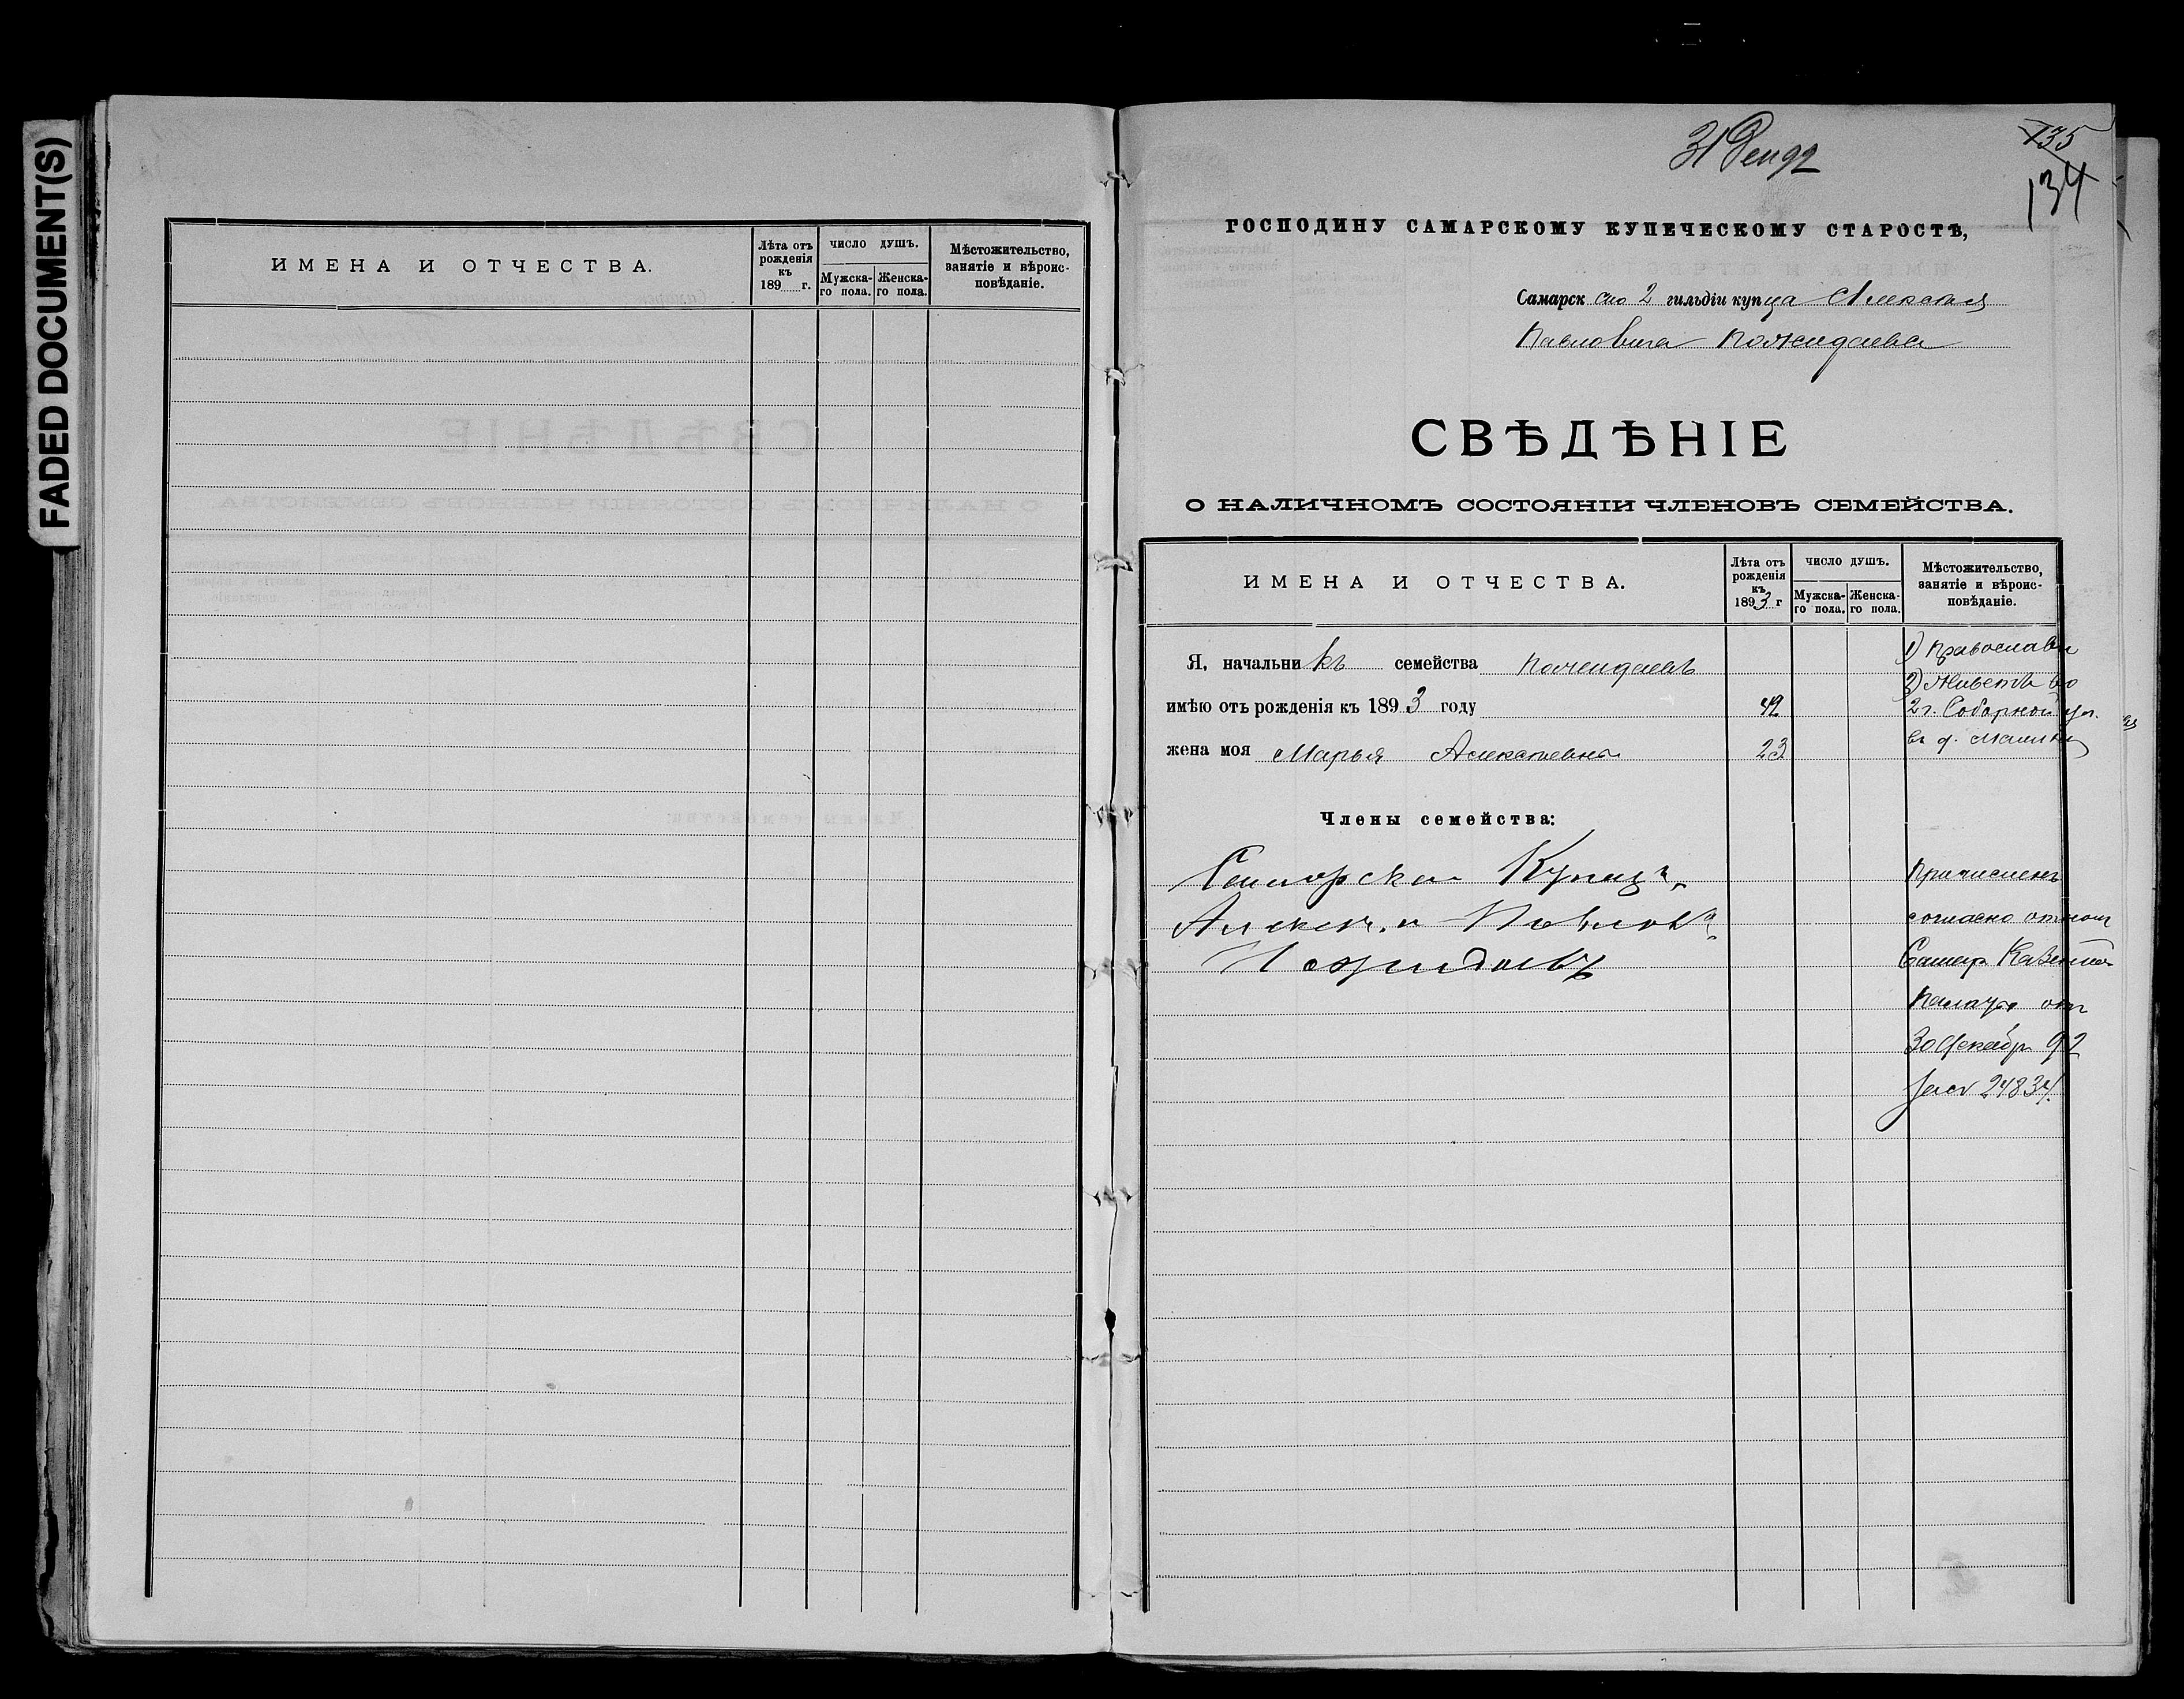 FADED DOCUMENT(S)
ИМЕНА И ОТЧЕСТВА.
Лѣта отъ рожденія къ 189 г.
ЧИСЛО ДУШЪ.
Мужска-го пола.
Женска-го пола.
Мѣстожительство, занятіе и вѣроис-повѣданіе.
31 Дек 92
135
134
ГОСПОДИНУ САМАРСКОМУ КУПЕЧЕСКОМУ СТАРОСТѢ,
Самарск аго 2 гильдіи купца Алексѣя
Павловича Пожидаева
СВѢДѢНІЕ
О НАЛИЧНОМЪ СОСТОЯНІИ ЧЛЕНОВЪ СЕМЕЙСТВА.
ИМЕНА И ОТЧЕСТВА.
Лѣта отъ рожденія къ 1893 г
ЧИСЛО ДУШЪ.
Мужска-го пола.
Женска-го пола.
Мѣстожительство, занятіе и вѣроис-повѣданіе.
Я, начальникъ семейства Пожидаевъ
имѣю отъ рожденія къ 1893 году 42
жена моя Марья Алексѣевна 23
1) Православн
2) Живетъ во
2 ч. Соборной ул.
въ д.
Члены семейства:
Самарскій Купецъ
Алексѣй Павлов
Пожидаевъ
Причисленъ
согласно отнош
Самар Казенной
Палаты отъ
30 Декабр 92
за № 24834.